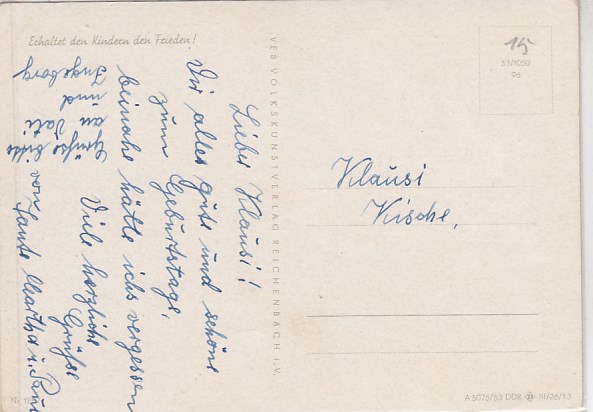 Erhaltet den Kindern den Frieden!
Lieber Klausi!
Dir alles gute und schöne
zum Geburtstage,
beinahe hätte ichs vergessen
Viele herzliche
Grüße
von Tante Martha u. Paul
Grüße bitte
an Vati
und
Ingeborg
VEB VOLKSKUNSTVERLAG REICHENBACH i.V.
15
53/1050
Klausi
Kische,
Nr.
A 5075/53 DDR III/26/13